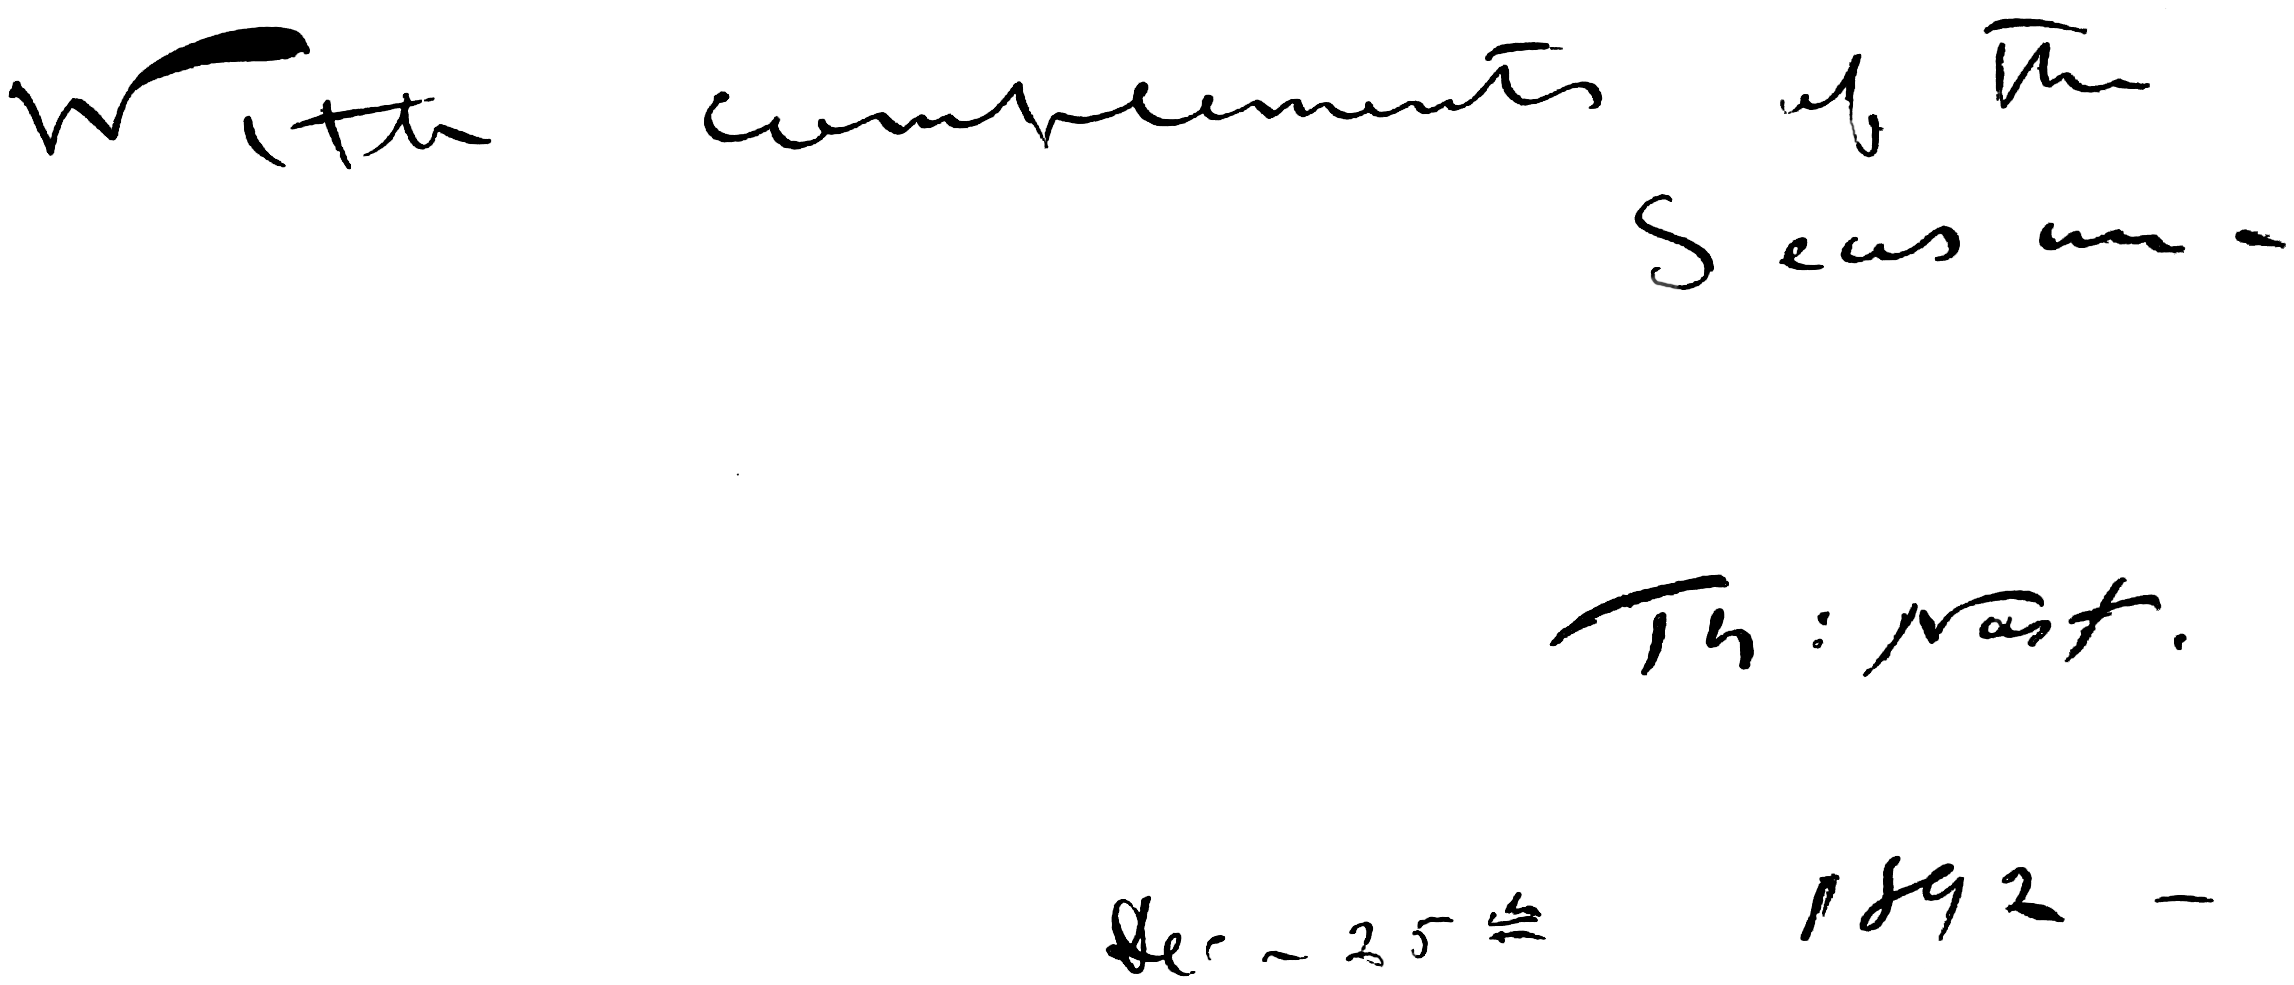 With complements of the
Season -
Th: Nast.
Dec - 25th 1892 -